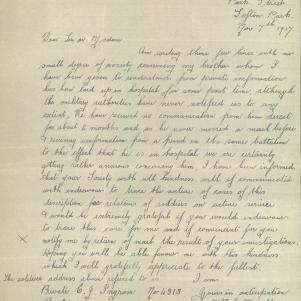 Park Street
Sefton Park.
Nov 7th 1917
Dear Sir or Madam
Am writing these few lines with no
small degree of anxiety concerning my brother whom I
have been given to understand from private information
has been laid up in hospital for some past time, although
the military authorities have never notified us to any
extent. We have received no communication from him direct
for about 2 months and as he now moved a month before
receiving information from a friend in the same battalion
to the effect that he is in hospital we are certainly
getting rather anxious concerning him I have been informed
that your Society with all kindness will if communicated
with endeavour to trace the matter of cases of this
description for relatives of soldiers on active service
I would be extremely grateful if you would endeavour
to trace this case for me and if convenient for you
notify me by return of mail the result of your investigations.
Hoping you will be able favour me with this kindness
which I will gratefully appreciate to the fullest.
The soldiers address above referred to is I am
Private C. J. Ingram No 4313 Yours in anticipation